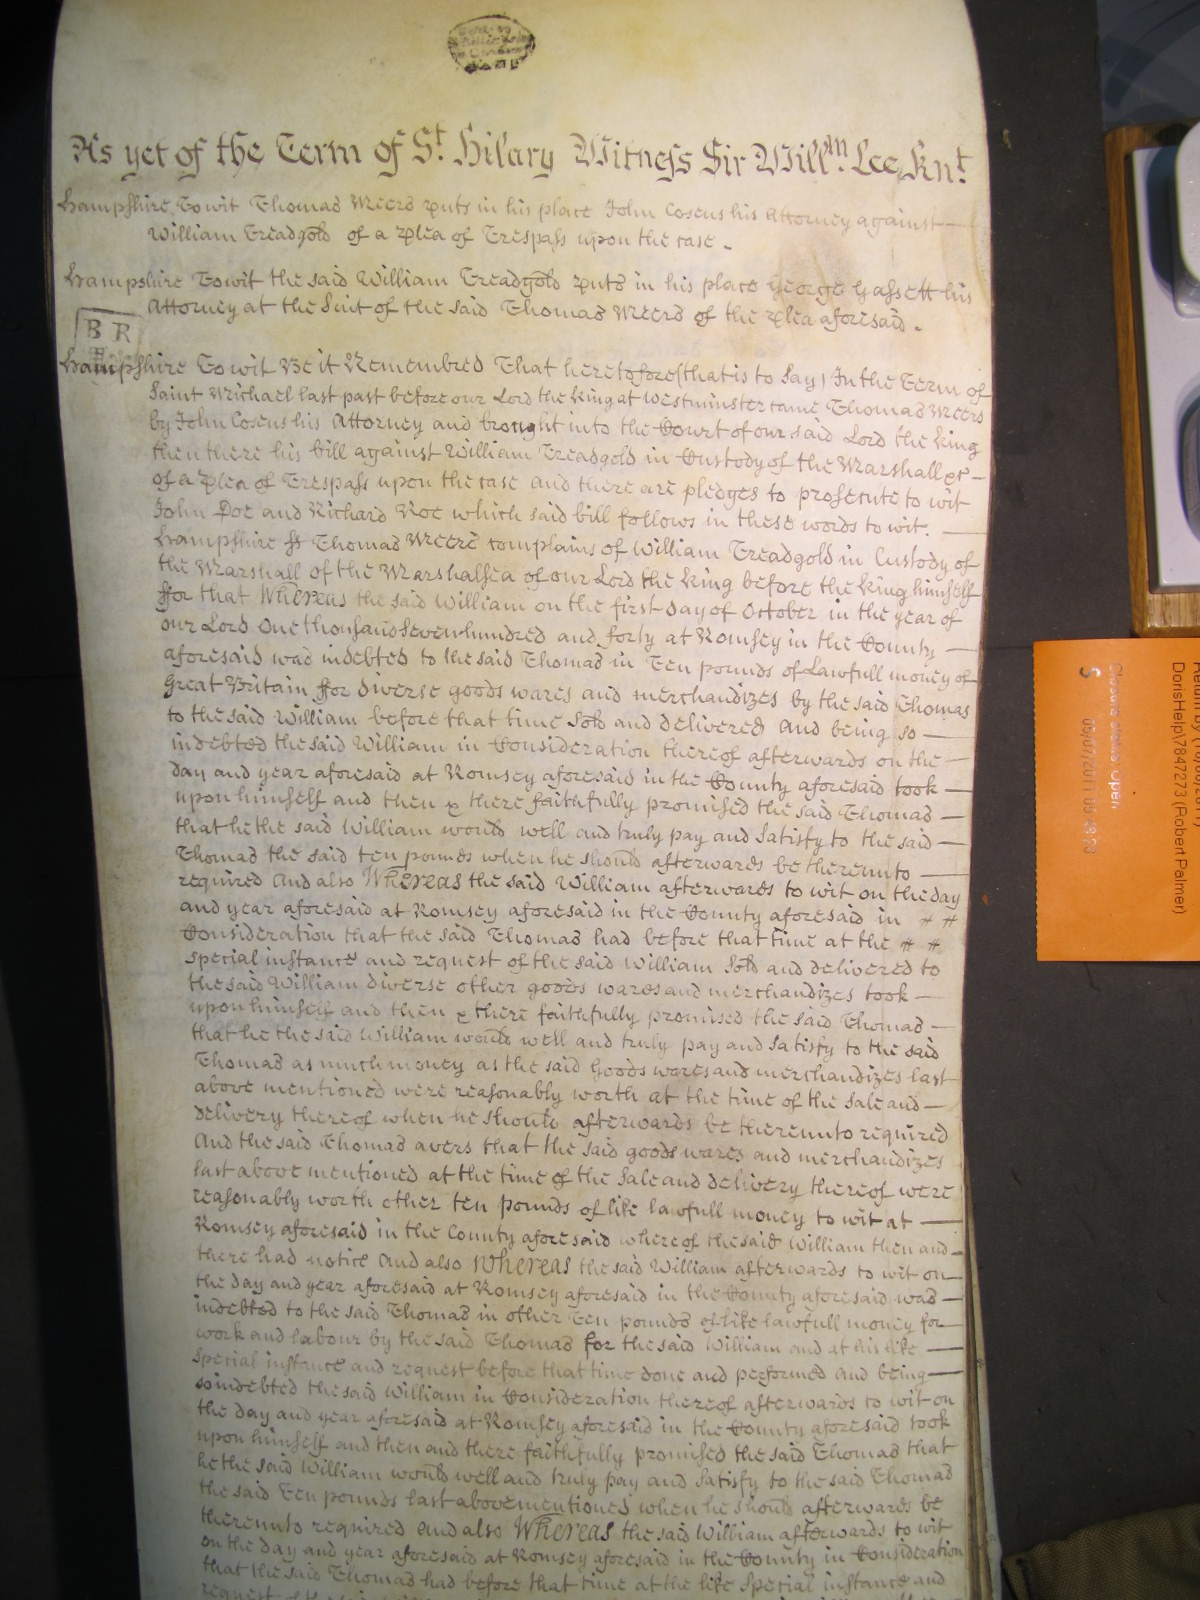 As yet of the Term of St. Hilary Witness Sir Willm. Lee, Knt.
Hampshire To wit Thomas Meers puts in his place John Cosens his Attorney against
William Treadgold of a Plea of Trespass upon the case.
Hampshire To wit the said William Treadgold puts in his place George Gassett his
Attorney at the Suit of the said Thomas Meers of the plea aforesaid.
B R
Hampshire To wit Be it Remembred That heretofore (that is to Say) In the Term of
Saint Michael last past before our Lord the King at Westminster came Thomas Meers
by John Cosens his Attorney and brought into the Court of our said Lord the King
then there his bill against William Treadgold in Custody of the Marshall &c
of a Plea of Trespass upon the case and there are pledges to prosecute to wit
John Doe and Richard Roe which said bill follows in these words to wit.
Hampshire ss Thomas Meers complains of William Treadgold in Custody of
the Marshall of the Marshalsea of our Lord the King before the King himself
ffor that Whereas the said William on the first Day of October in the year of
our Lord One thousand Seven hundred and forty at Romsey in the County
aforesaid was indebted to the said Thomas in Ten pounds of Lawfull money of
Great Britain ffor diverse goods wares and merchandizes by the said Thomas
to the said William before that time Sold and delivered And being so
indebted the said William in Consideration thereof afterwards on the
day and year aforesaid at Romsey aforesaid in the County aforesaid took
upon himself and then & there faithfully promised the said Thomas
that he the said William would well and truly pay and Satisfy to the said
Thomas the said ten pounds when he should afterwards be thereunto
required And also Whereas the said William afterwards to wit on the day
and year aforesaid at Romsey aforesaid in the County aforesaid in
Consideration that the said Thomas had before that time at the
special instance and request of the said William Sold and delivered to
the said William diverse other goods wares and merchandizes took
upon himself and then & there faithfully promised the said Thomas
that he the said William would well and truly pay and Satisfy to the said
Thomas as much money as the said Goods wares and merchandizes last
above mentioned were reasonably worth at the time of the Sale and
delivery thereof when he should afterwards be thereunto required
And the said Thomas avers that the said goods wares and merchandizes
last above mentioned at the time of the Sale and delivery thereof were
reasonably worth other ten pounds of like lawfull money to wit at
Romsey aforesaid in the County aforesaid whereof the said William then and
there had notice And also Whereas the said William afterwards to wit on
the day and year aforesaid at Romsey aforesaid in the County aforesaid was
indebted to the said Thomas in other Ten pounds of like lawfull money for
work and labour by the said Thomas for the said William and at his like
Special instance and request before that time done and performed And being
so indebted the said William in Consideration thereof afterwards to wit on
the day and year aforesaid at Romsey aforesaid in the County aforesaid took
upon himself and then and there faithfully promised the said Thomas that
he the said William would well and truly pay and Satisfy to the said Thomas
the said Ten pounds last abovementioned when he should afterwards be
thereunto required And also Whereas the said William afterwards to wit
on the day and year aforesaid at Romsey aforesaid in the County in Consideration
that the said Thomas had before that time at the like Special instance and
request of the said
DorisHelp\7847273 (Robert Palmer)
Closure status Open
5